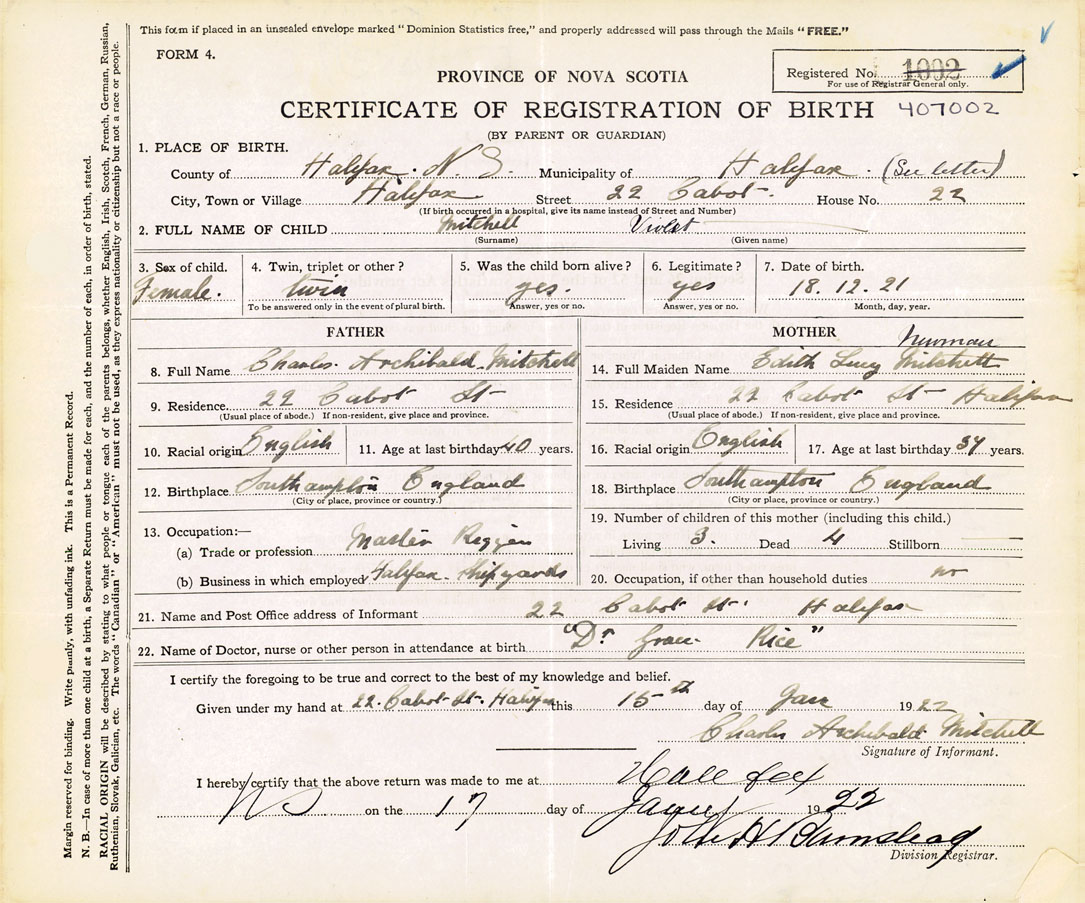 This form if placed in an unsealed envelope marked "Dominion Statistics free," and properly addressed will pass through the Mails "FREE."
FORM 4.
PROVINCE OF NOVA SCOTIA
Registered No. 1002
For use of Registrar General only.
CERTIFICATE OF REGISTRATION OF BIRTH 407002
(BY PARENT OR GUARDIAN)
1. PLACE OF BIRTH.
County of Halifax. N. S. Municipality of Halifax. (See letter)
City, Town or Village Halifax Street 22 Cabot. House No. 22
(If birth occurred in a hospital, give its name instead of Street and Number)
2. FULL NAME OF CHILD Mitchell Violet
(Surname) (Given name)
3. Sex of child. 4. Twin, triplet or other? 5. Was the child born alive? 6. Legitimate? 7. Date of birth.
Female. twin yes. yes 18. 12. 21
To be answered only in the event of plural birth. Answer, yes or no. Answer, yes or no. Month, day, year.
FATHER
8. Full Name Charles Archibald Mitchell
9. Residence 22 Cabot St
(Usual place of abode.) If non-resident, give place and province.
10. Racial origin English 11. Age at last birthday 40 years.
12. Birthplace Southampton England
(City or place, province or country.)
13. Occupation:—
(a) Trade or profession Master Rigger
(b) Business in which employed Halifax Shipyards
MOTHER
Newman
14. Full Maiden Name Edith Lucy Mitchell
15. Residence 22 Cabot St Halifax
(Usual place of abode.) If non-resident, give place and province.
16. Racial origin English 17. Age at last birthday 37 years.
18. Birthplace Southampton England
(City or place, province or country.)
19. Number of children of this mother (including this child.)
Living 3. Dead 4 Stillborn
20. Occupation, if other than household duties no
21. Name and Post Office address of Informant 22 Cabot St. Halifax
22. Name of Doctor, nurse or other person in attendance at birth "Dr Grace Rice"
I certify the foregoing to be true and correct to the best of my knowledge and belief.
Given under my hand at 22. Cabot St. Halifax this 15th day of Jan 1922
Charles Archibald Mitchell
Signature of Informant.
I hereby certify that the above return was made to me at Halifax
NS on the 17 day of January 1922
John H Barnstead
Division Registrar.
Margin reserved for binding. Write plainly, with unfading ink. This is a Permanent Record.
N. B.—In case of more than one child at a birth, a Separate Return must be made for each, and the number of each, in order of birth, stated.
RACIAL ORIGIN will be described by stating to what people or tongue each of the parents belongs, whether English, Irish, Scotch, French, German, Russian,
Ruthenian, Slovak, Galician, etc. The words "Canadian" or "American" must not be used, as they express nationality or citizenship but not a race or people.